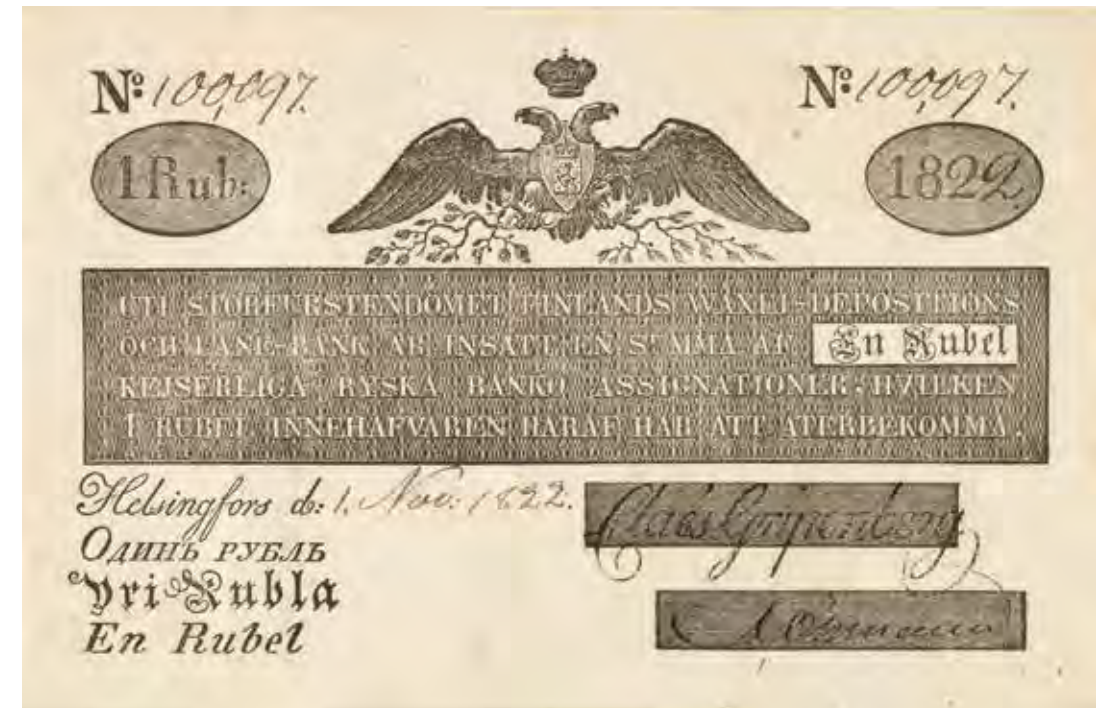 Nº 100,097.
Nº 100,097.
1 Rub:
1822.
UTI STORFURSTENDÖMET FINLANDS WÄXEL-DEPOSITIONS
OCH LÅNE-BANK ÄR INSATT EN SUMMA AF En Rubel
KEJSERLIGA RYSKA BANKO ASSIGNATIONER, HVILKEN
1 RUBEL INNEHAFVAREN HÄRAF HAR ATT ÅTERBEKOMMA.
Helsingfors d: 1. Nov: 1822.
Claes Gripenberg
Одинъ рубль
Yri Rubla
En Rubel